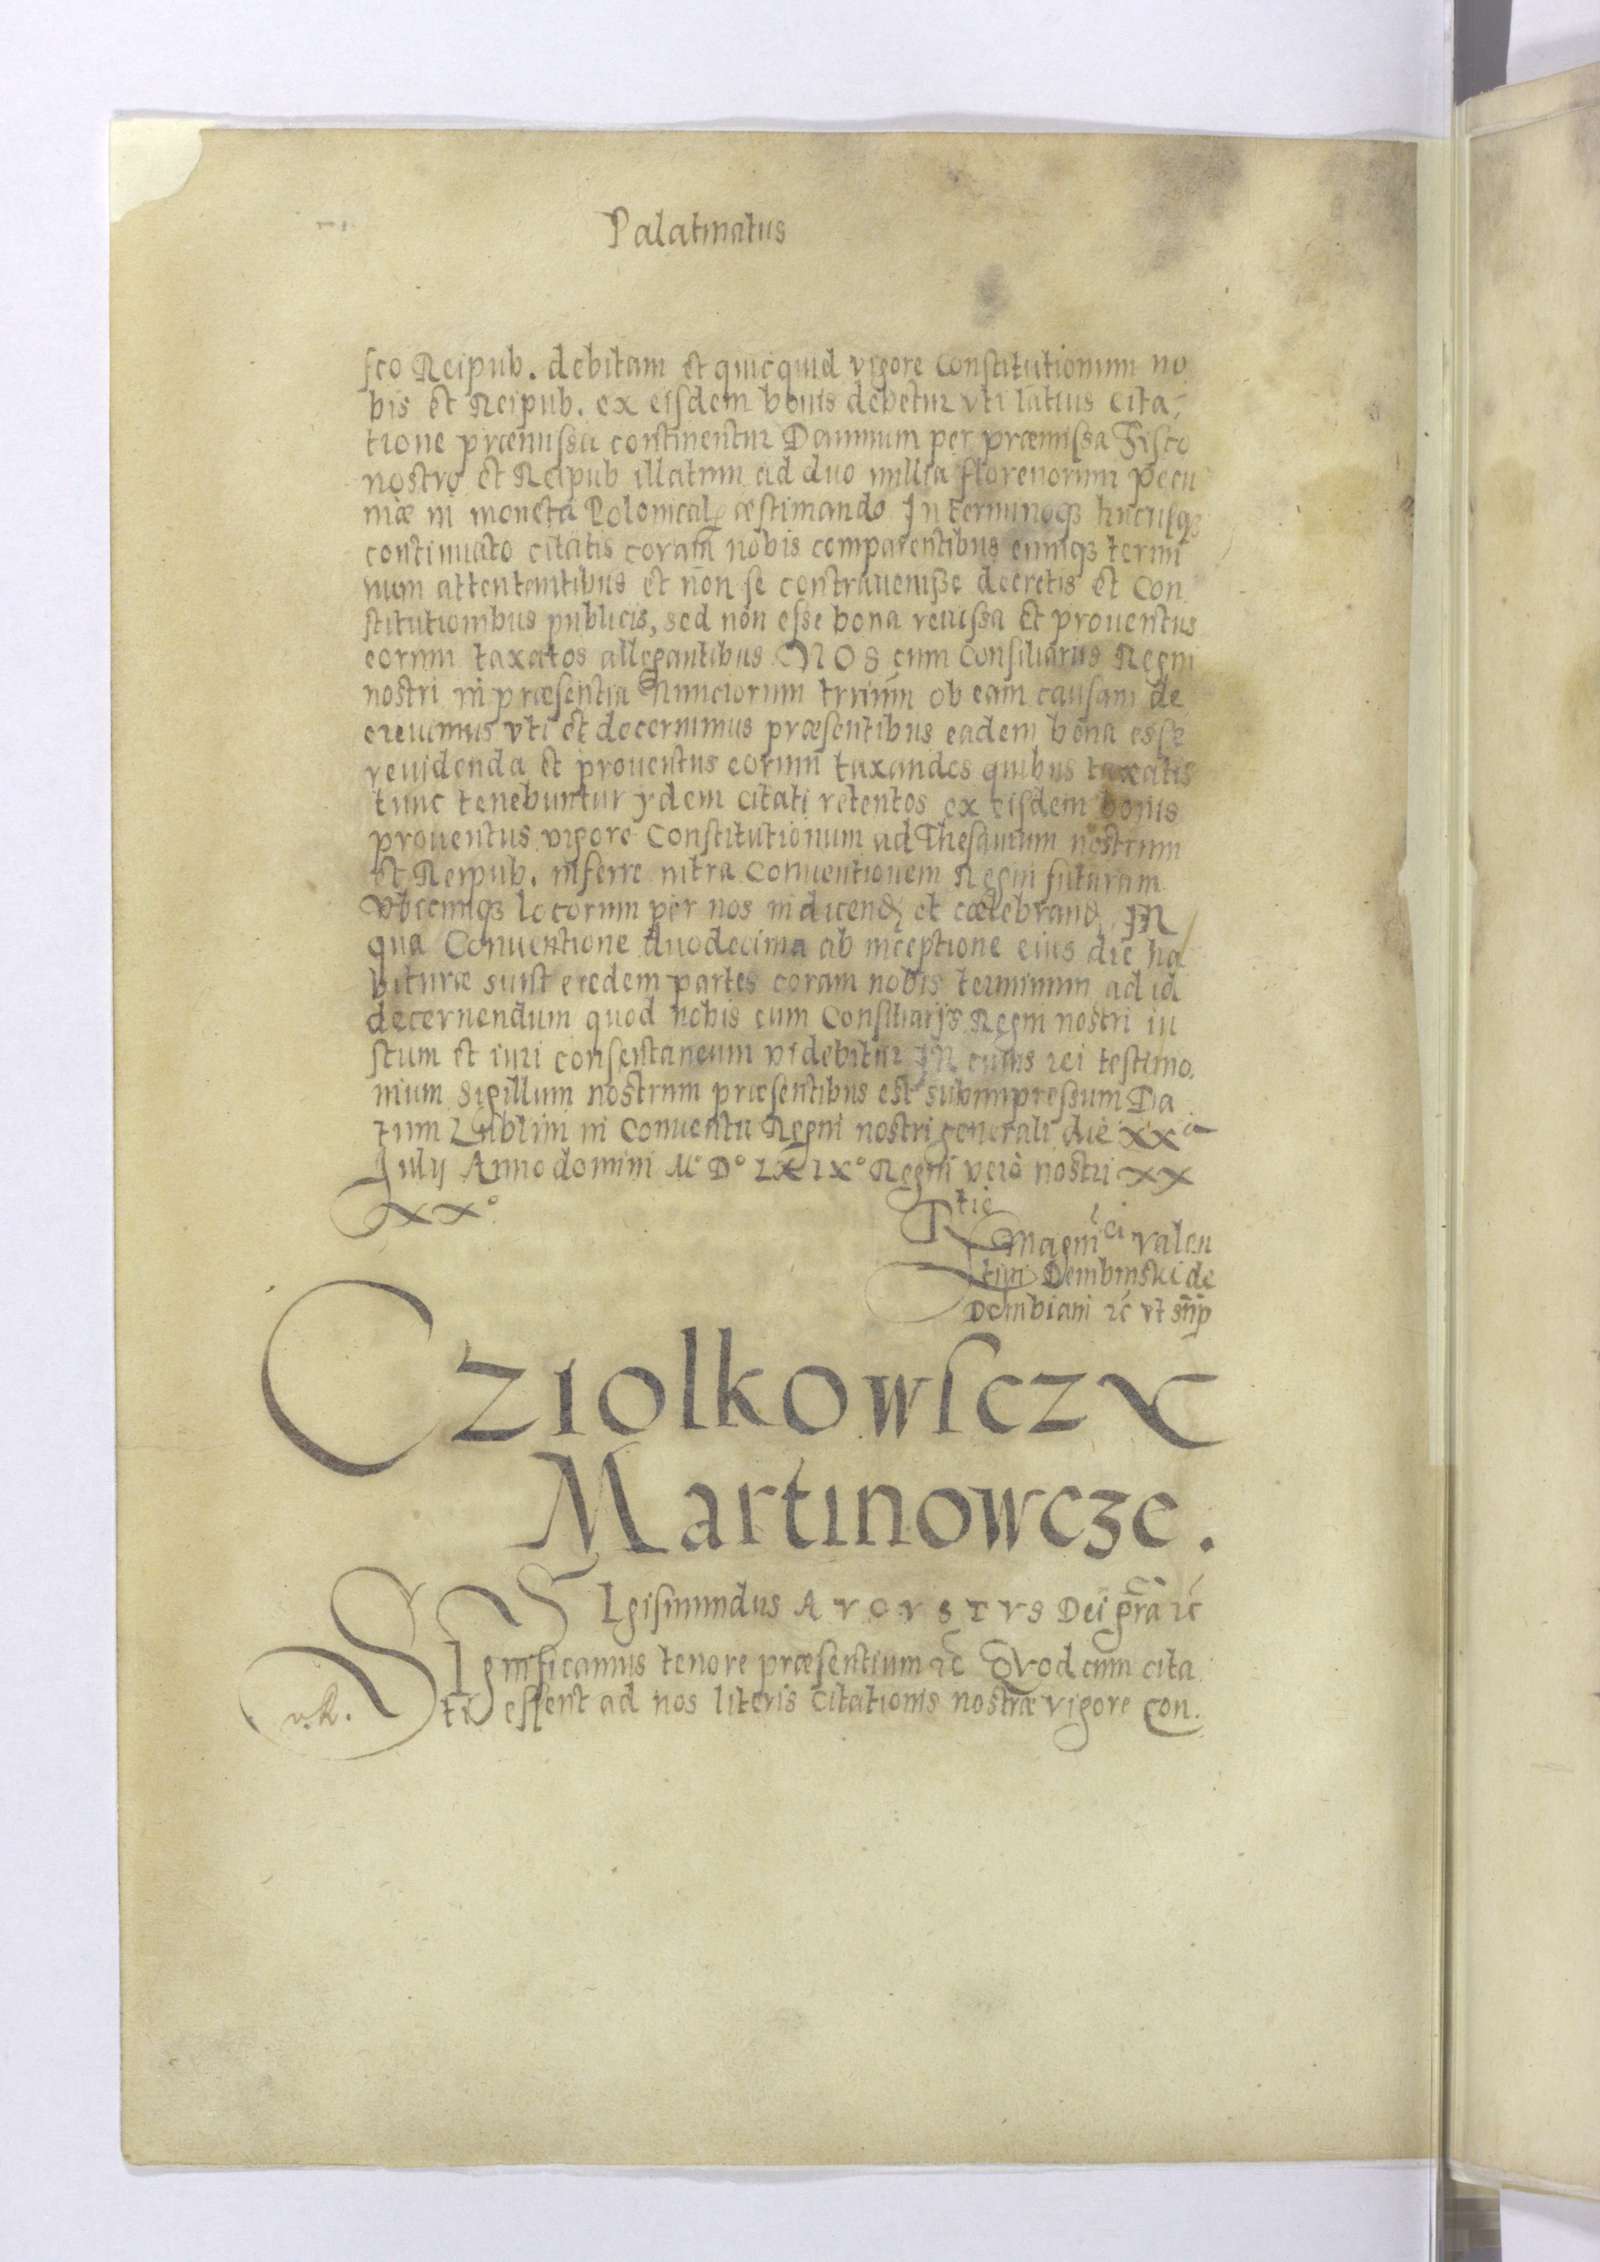 Palatinatus
sco Reipub. debitam et quicquid vigore Constitutionum no
bis et Reipub. ex eisdem bonis debetur vti latius cita,
tione præmissa continentur Damnum per præmissa Fisco
nostro et Reipub illatum ad duo millia florenorum pecu
niæ in moneta Polonical æstimando In terminoqz hucusqz
continuato citatis coram nobis comparentibus eumqz termi
num attentantibus et non se contrauenisse decretis et Con
stitutionibus publicis, sed non esse bona reuissa et prouentus
eorum taxatos allegantibus NOS cum Consiliarijs Regni
nostri in præsentia Nunciorum trrūm ob eam causam de
creuimus vti et decernimus præsentibus eadem bona esse
reuidenda et prouentus eorum taxandos quibus taxatis
tunc tenebuntur ydem citati retentos ex eisdem bonis
prouentus vigore Constitutionum ad Thesaurum nostrum
et Reipub. inferre intra Conuentionem Regni futuram
vbicumqz locorum per nos indicend et cælebrand IN
qua Conuentione duodecima ab inceptione eius die ha
bituræ sunt eædem partes coram nobis terminum ad id
decernendum quod nobis cum Consiliarijs Regni nostri iu
stum et iuri consentaneum videbitur IN cuius rei testimo.
nium Sigillum nostrum præsentibus est subimpressum Da
tum Lublini in Conuentu Regni nostri generali die xxa
Iulij Anno domini Mº Dº LXIXº Regni vero nostri xx
xxº.
Rtiē
Magnīci valen
tini Dembinski de
Dembiani zc vt sup
Cziolkowsczy
Martinowcze.
SIgismundus AVGVSTVS Dei gr̄a zc
SIgnificamus tenore præsentium zc QVod cum cita
ti essent ad nos literis Citationis nostræ vigore Con.
v.R.